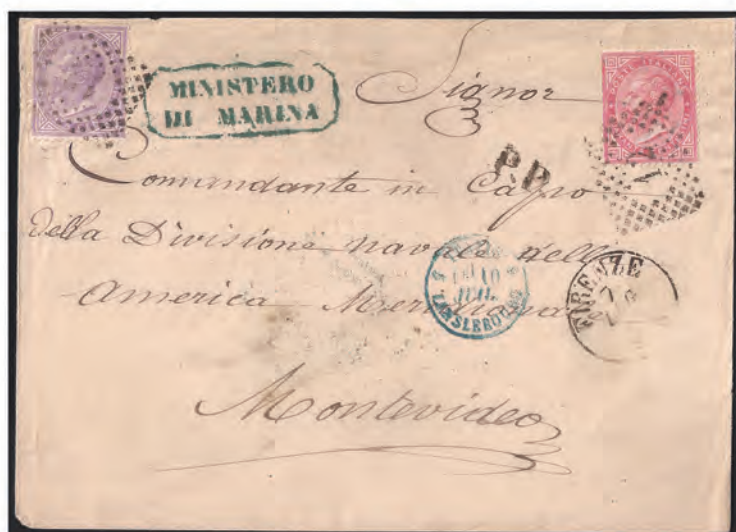 MINISTERO
DI MARINA
Signor
P.P.
Comandante in Capo
della Divisione navale dell'
America Meridionale
10
JUIL
LANSLEBOURG
FIRENZE
7
Montevideo